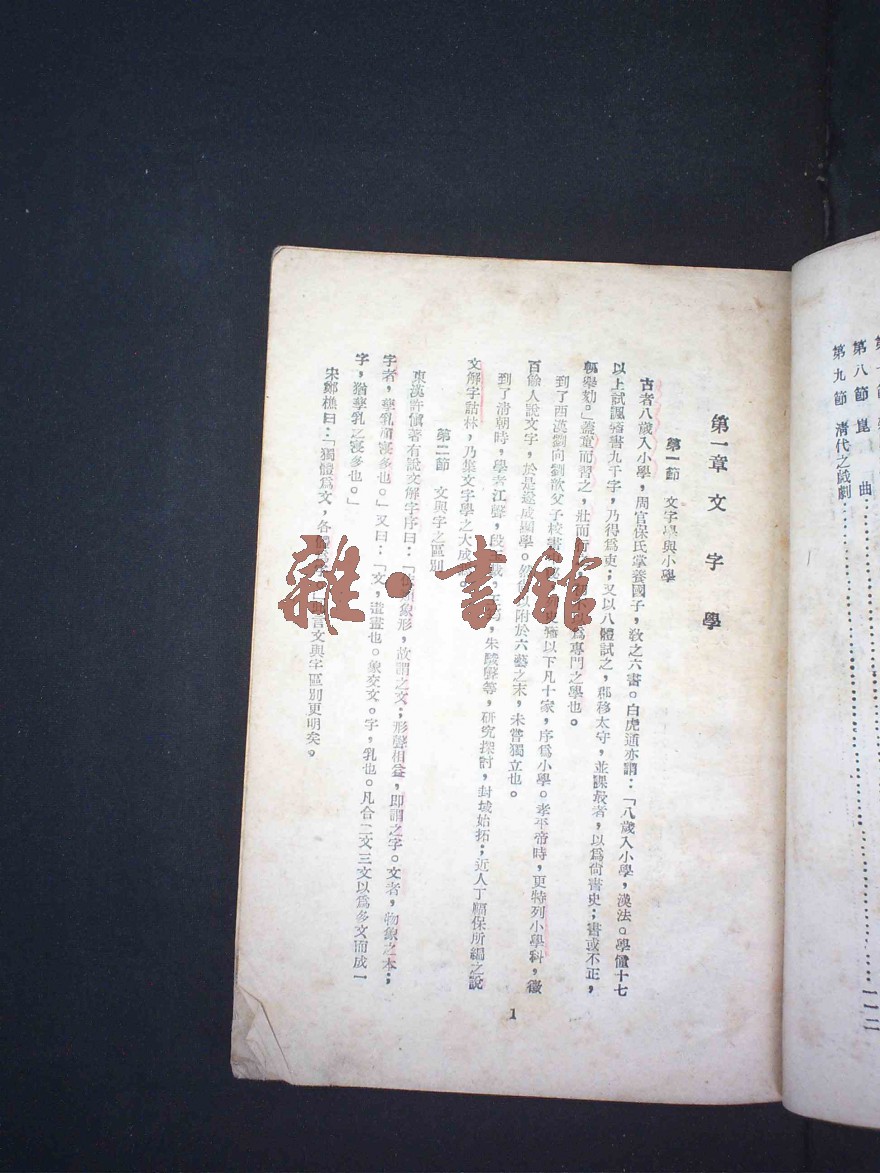 第八節 崑 曲
第九節 清代之戲劇 一一二
第一章 文 字 學
第一節 文字學與小學
古者八歲入小學，周官保氏掌養國子，敎之六書。白虎通亦謂：「八歲入小學，漢法。學僮十七
以上試諷籀書九千字，乃得爲吏；又以八體試之，郡移太守，並課最者，以爲尙書史；書或不正，
輒舉劾。」蓋童而習之，壯而 不以爲專門之學也。
到了西漢劉向劉歆父子校書 籀以下凡十家，序爲小學。孝平帝時，更特列小學科，徵
百餘人說文字，於是遂成顯學。然 以附於六藝之末，未嘗獨立也。
到了清朝時，學者江聲，段玉裁，王筠，朱駿聲等，研究探討，封域始拓；近人丁福保所編之說
文解字詁林，乃集文字學之大成
第二節 文與字之區別
東漢許愼著有說文解字序曰：「 象形，故謂之文；形聲相益，卽謂之字。文者，物象之本；
字者，孳乳而寖多也。」又曰：「文，遣畫也。象交文。字，乳也。凡合二文三文以爲多文而成一
字，猶孳乳之寖多也。」
宋鄭樵曰：「獨體爲文，合體 言文與字區別更明矣。
1
雜·書館